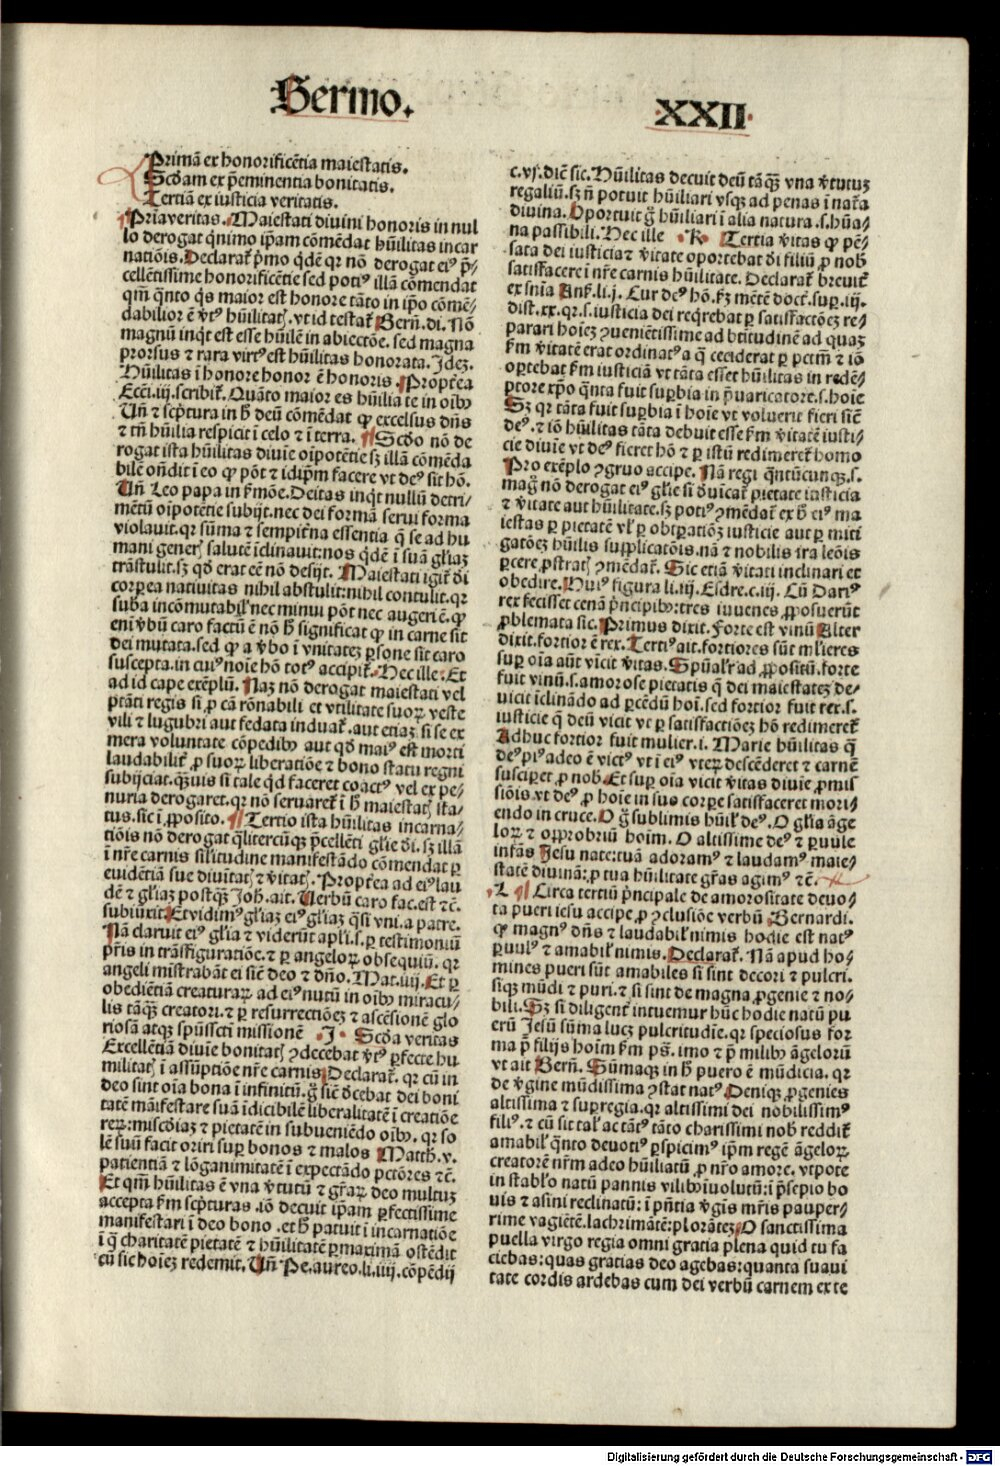 Sermo.
XXII
Primā ex honorificētia maiestatis.
Scḋam ex p̄eminentia bonitatis.
Tertiā ex iusticia veritatis.
Pria veritas. Maiestati divini honoris in nul
lo derogat qͥnimo ip̄am cōmēdat hūilitas incar
natiōis. Declarat̃ pͥmo qͥdē qꝛ nō derogat eiꝰ p̄-
cellētissime honorificētie sed potiꝰ illā cōmendat
qm̄ qͣnto qͥs maior est honore tāto in ip̄o cōmē-
dabilior ē v̓tꝰ hūilitatꝭ. vt id testat̃ Bern̄. di. Nō
magnū inqͥt est esse hūilē in abiectōe. sed magna
prorsus ⁊ rara virtꝰ est hūilitas honorata. Ideꝫ.
Hūilitas ī honore honor ē honoris. Propt̓ea
Ecci. iij. scribit̃. Quāto maior es hūilia te in oībꝰ
Uñ ⁊ scp̄tura in hͦ deū cōmēdat ꝙ excelsus dn̄s
⁊ tn̄ hūilia respicit ī celo ⁊ ī terra. Scḋo nō de
rogat ista hūilitas diuīe oīpotētie sꝫ illā cōmēda
bilē on̄dit ī eo ꝙ pōt ⁊ idip̄m facere vt deꝰ sit hō.
Uñ Leo papa in ẜmōe. Deitas inqͥt nullū detri-
mētū oīpotētie subijt. nec dei formā serui forma
violauit. qꝛ sūma ⁊ sempit̓na essentia q̄ se ad hu
mani generꝭ salutē īclinauit: nos qͥdē ī suā gl̓iaꝫ
trāstulit. sꝫ qḋ erat eē nō desijt. Maiestati igit̃ di
corꝑea natiuitas nihil abstulit: nihil contulit. qꝛ
suba incōmutabil̓ nec minui pōt nec augeri ē. ꝙ
eni v̓bū caro factū ē nō hͦ significat ꝙ in carne sit
dei mutata. sed ꝙ a v̓bo ī vnitatē ꝑsone sit caro
suscepta. in cuiꝰ noīe hō totꝰ accipit̃. Hec ille. Et
ad id cape exēplū. Naꝫ nō derogat maiestati vel
ptāti regis si ꝓ cā rōnabili et vtilitate suoꝝ veste
vili ⁊ lugubri aut fedata induat̃. aut etiaꝫ si se ex
mera voluntate cōpedibꝰ aut qḋ maiꝰ est morti
laudabilit̓ ꝓ suoꝝ liberatiōe ⁊ bono statu regni
subijciat. qͣꝫuis si tale qͥd faceret coactꝰ vel ex pe-
nuria derogaret. qꝛ nō seruaret̃ ī hͦ maiestatꝭ sta-
tus. sic ī ꝓposito. Tertio ista hūilitas incarna-
tiōis nō derogat qͣlitercūqꝫ p̄cellēti gl̓ie di. sꝫ illā
ī nr̄e carnis sil̓itudine manifestādo cōmendat ꝑ
euidētiā sue diuītatꝭ ⁊ v̓itatꝭ. Propt̓ea ad eiꝰ lau
dē ⁊ gl̓iaꝫ postqͣꝫ Joh. ait. Uerbū caro fac. est ⁊c.
subiūxit. Et vidimꝰ gl̓iaꝫ eiꝰ gl̓iaꝫ qͣsi vni. a patre.
Nā claruit eiꝰ gl̓ia ⁊ viderūt apl̓i. s. ꝑ testimoniū
pr̄is in trāsfiguratiōe. ⁊ ꝑ angeloꝝ obsequiū. qꝛ
angeli ministrabāt ei sic̄ deo ⁊ dn̄o. Mat. iiij. Et ꝑ
obediētiā creaturaꝝ ad eiꝰ nutū in oībꝰ miracu-
lis tāqͣꝫ creatori. ⁊ ꝑ resurrectiōeꝫ ⁊ ascēsionē glo
riosā atqꝫ spūssct̄i missionē .J. Scḋa veritas
Excellētiā diuīe bonitatꝭ ꝯdecebat v̓tꝰ ꝑfecte hu
militatꝭ ī assūptiōe nr̄e carnis Declarat̃. qꝛ cū in
deo sint oīa bona ī infinitū. gͦ sic̄ dͨcebat dei boni
tatē māifestare suā īdicibilē liberalitatē ī creatiōe
reꝝ: miscḋiaꝫ ⁊ pietatē in subueniēdo oībꝰ. qꝛ so
lē suū facit oriri suꝑ bonos ⁊ malos Matth. v.
patientiā ⁊ lōganimitatē ī expectādo pctōres ⁊c.
Et qm̄ hūilitas ē vna v̓tutū ⁊ gr̄aꝝ deo multuꝫ
accepta ẜm scp̄turas. iō decuit ip̄am ꝑfectissime
manifestari ī deo bono. et hͦ patuit ī incarnatiōe
ī q̄ charitatē pietatē ⁊ hūilitatē ꝑmaximā ostēdit
cū sic hoīeꝫ redemit. Uñ Pe. aureo. li. iiij. cōpēdij
c. vj. dic̄ sic. Hūilitas decuit deū tāqͣꝫ vna v̓tutuꝫ
regaliū. sꝫ n̄ potuit hūiliari vsqꝫ ad penas ī nat̓a
diuina. Oportuit gͦ hūiliari ī alia natura. s. hūa-
na passibili. Hec ille .K. Tertia v̓itas ꝙ pē-
sata dei iusticia ⁊ v̓itate oportebat di filiū ꝓ nob̓
satisfacere ī nr̄e carnis hūilitate. Declarat̃ breuit̓
ex sn̄ia Anẜ. li. j. Cur deꝰ hō. ⁊ ẜm mētē doct̓. suꝑ. iij.
dist. xx. qꝛ. s. iusticia dei reqͥrebat ꝑ satisfactōeꝫ re-
parari hoīeꝫ ꝯuenietissime ad btītudinē ad quaꝫ
ẜm v̓itatē erat ordinatꝰ a q̄ ceciderat ꝑ pctm̄ ⁊ iō
oꝑtebat ẜm iusticiā vt tāta esset hūilitas in redē-
ptore xp̄o qͣnta fuit suꝑbia in p̄uaricatore. s. hoīe
Sꝫ qꝛ tāta fuit suꝑbia ī hoīe vt voluerit fieri sic̄
deꝰ. ⁊ iō hūilitas tāta debuit esse ẜm v̓itatē iusti-
cie diuīe vt deꝰ fieret hō ⁊ ꝑ istū redimeret̃ homo
Pro exēplo ꝯgruo accipe. Nā regi qͣntūcunqꝫ. s.
magͦ nō derogat eiꝰ gl̓ie si v̓uicat̃ pietate iusticia
⁊ v̓itate aut hūilitate. sꝫ potiꝰ ꝯmēdat̃ ex hͦ eiꝰ ma
iestas ꝑ pietatē vl̓ ꝑ obt̓ꝑatiōꝫ iusticie aut ꝑ miti
gatōeꝫ hūilis supplicatōis. nā ⁊ nobilis ira leōis
ꝑcere ꝓstratꝭ ꝯmēdat̃. Sic etiā v̓itati inclinari et
obedire. Huiꝰ figura li. iij. Esdre. c. iij. Cū Dariꝰ
rex fecisset cenā p̄ncipibꝰ: tres iuuenes ꝓposuerūt
ꝓblemata sic. Primus dixit. Forte est vinū Alter
dixit. fortior ē rex. Tertiꝰ ait. fortiores sūt ml̓ieres
suꝑ oīa aūt vicit v̓itas. Spūal̓r ad ꝓpositū. forte
fuit vinū. s. amorose pietatis q̄ dei maiestateꝫ de-
uicit īclināndo ad ꝑcēdū hoī. sed fortior fuit rex. s.
iusticie q̄ deū vicit vt ꝑ satisfactiōeꝫ hō redimeret̃
Adhuc fortior fuit mulier. i. Marie hūilitas q̄
deꝰ piꝰ adeo ē victꝰ vt ī eiꝰ vteꝝ descēderet ⁊ carnē
susciꝑet ꝓ nob. Et suꝑ oīa vicit v̓itas diuīe ꝓmis
siōis. vt deꝰ ꝓ hoīe in suo corꝑe satisfaceret mori-
endo in cruce. O gͦ sublimis hūil̓ deꝰ. O gl̓ia āge
loꝝ ⁊ opprobriū hoīm. O altissime deꝰ ⁊ ꝑuule
infās Jesu nate: tuā adoramꝰ ⁊ laudamꝰ maie-
statē diuinā: ꝓ tua hūilitate gr̄as agimꝰ ⁊c.
.L. Circa tertiū p̄ncipale de amorositate deuo-
ta pueri iesu accipe ꝓ ꝯclusiōe verbū Bernardi.
ꝙ magnꝰ dn̄s ⁊ laudabil̓ nimis hodie est natꝰ
ꝑuulꝰ ⁊ amabil̓ nimis. Declarat̃. Nā apud ho-
mines pueri sūt amabiles si sint decori ⁊ pulcri.
siqꝫ mūdi ⁊ puri. ⁊ si sint de magna ꝓgenie ⁊ no-
bili. Sꝫ si diligent̓ intuemur hūc hodie natū pu
erū Jesū sūma lucꝫ pulcritudīe. qꝛ speciosus for
ma p̄ filijs hoīm ẜm ps̄. imo ⁊ p̄ milibꝰ āgelorū
vt ait Bern̄. Sūmaqꝫ in hͦ puero ē mūdicia. qꝛ
de v̓gine mūdissima ꝯstat natꝰ. Deniqꝫ ꝓgenies
altissima ⁊ suꝑregia. qꝛ altissimi dei nobilissimꝰ
filiꝰ. ⁊ cū sit tal̓ ac tātꝰ tāto charissimi nob̓ reddit̃
amabil̓ qͣnto deuotiꝰ ꝑspicimꝰ ip̄m regē āgeloꝝ
creatorē nr̄m adeo hūiliatū ꝓ nr̄o amore. vtpote
in stablo natū pannis vilibꝰ īuolutū: ī p̄sepio bo
uis ⁊ asini reclinatū: ī pn̄tia v̓gīs mr̄is pauper-
rime vagiētē. lachrimātē: ploratēꝫ. O sanctissima
puella virgo regia omni gratia plena quid tu fa
ciebas: quas gratias deo agebas: quanta suaui
tate cordis ardebas cum dei verbū carnem ex te
Digitalisierung gefördert durch die Deutsche Forschungsgemeinschaft - DFG